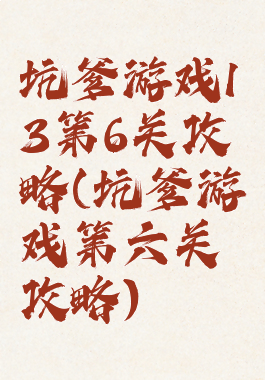 坑爹游戏1
3第6关攻
略(坑爹游
戏第六关
攻略)